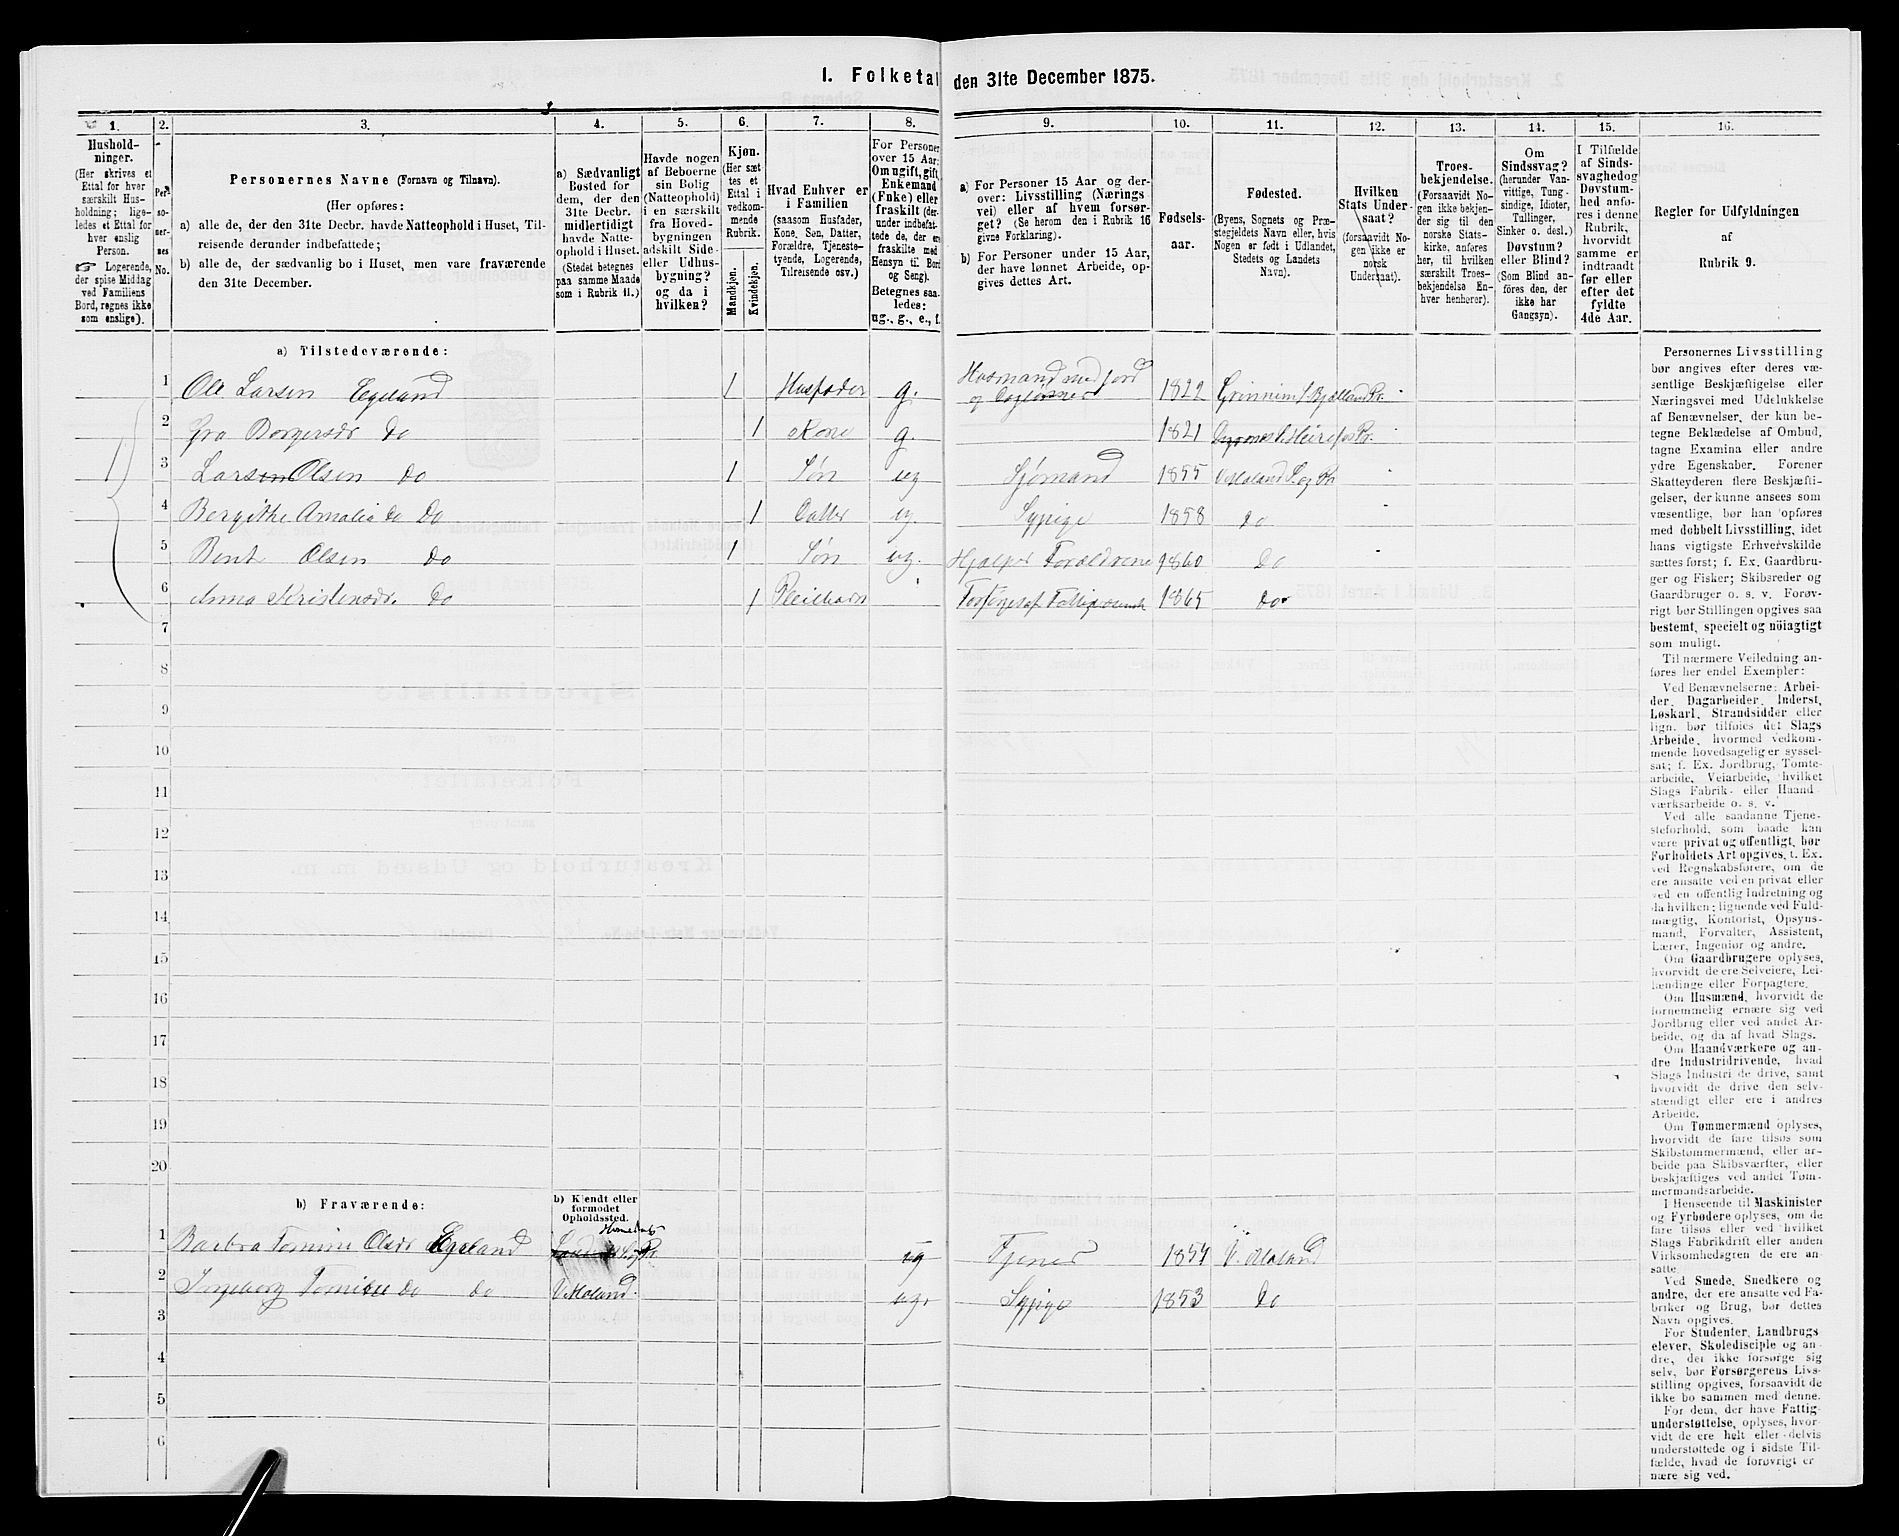 1. Folketal den 31te December 1875.
1.
Hushold-
ninger.
(Her skrives et
Ettal for hver
særskilt Hus-
holdning; lige-
ledes et Ettal for
hver enslig
Person.
☞ Logerende,
der spise Middag
ved Familiens
Bord, regnes ikke
som enslige).
2.
Per-
so-
ner-
nes
No.
3.
Personernes Navne (Fornavn og Tilnavn).
(Her opføres:
a) alle de, der den 31te Decbr. havde Natteophold i Huset, Til-
reisende derunder indbefattede;
b) alle de, der sædvanlig bo i Huset, men vare fraværende
den 31te December.
4.
a) Sædvanligt
Bosted for
dem, der den
31te Decbr.
midlertidigt
havde Natte-
ophold i Huset.
(Stedet betegnes
paa samme Maade
som i Rubrik 11.)
5.
Havde nogen
af Beboerne
sin Bolig
(Natteophold)
i en særskilt
fra Hoved-
bygningen
adskilt Side-
eller Udhus-
bygning?
og da i
hvilken?
6.
Kjøn.
(Her sæt-
tes et
Ettal i
vedkom-
mende
Rubrik.
Mandkjøn.
Kvindekjøn.
7.
Hvad Enhver er
i Familien
(saasom Husfader,
Kone, Søn, Datter,
Forældre, Tjeneste-
tyende, Logerende,
Tilreisende osv.)
8.
For Personer
over 15 Aar:
Om ugift, gift,
Enkemand
(Enke) eller
fraskilt (der-
under indbefat-
tede de, der ere
fraskilte med
Hensyn til Bord
og Seng).
Betegnes saa-
ledes:
ug., g., e., f.
9.
a) For Personer 15 Aar og der-
over: Livsstilling (Nærings-
vei) eller af hvem forsør-
get? (Se herom den i Rubrik 16
givne Forklaring).
b) For Personer under 15 Aar,
der have lønnet Arbeide, op-
gives dettes Art.
10.
Fødsels-
aar.
11.
Fødested.
(Byens, Sognets og Præ-
stegjeldets Navn eller, hvis
Nogen er født i Udlandet,
Stedets og Landets
Navn).
12.
Hvilken
Stats Under-
saat?
(forsaavidt No-
gen ikke er
norsk
Undersaat).
13.
Troes-
bekjendelse.
(Forsaavidt No-
gen ikke bekjen-
der sig til den
norske Stats-
kirke, anføres
her, til hvilken
særskilt Troes-
bekjendelse En-
hver henhører).
14.
Om
Sindssvag?
(herunder Van-
vittige, Tung-
sindige, Idioter,
Tullinger,
Sinker o. desl.)
Døvstum?
eller Blind?
(Som Blind an-
føres den, der
ikke har
Gangsyn).
15.
I Tilfælde
af Sinds-
svaghed og
Døvstum-
hed anfø-
res i denne
Rubrik,
hvorvidt
samme er
indtraadt
før eller
efter det
fyldte
4de Aar.
16.
Regler for Udfyldningen
af
Rubrik 9.
a) Tilstedeværende:
1 Ole Larsen Egeland 1 Husfader g. Husmand med Jord og Dagløner 1822 Grinnim S. Bjelland Pr.
2 Borgersdr do 1 Kone g. 1821
1 3 Lars Olsen do 1 Søn ug Sjømand 1855 V. Moland S. og Pr.
4 Bergithe Amalia do do 1 Datter ug. Sypige 1858 do
5 Bent Olsen do 1 Søn ug. Hjælper Forældrene 1860 do
6 Anna Kristensdr. do 1 Pleiebarn 1865 do
7
8
9
10
11
12
13
14
15
16
17
18
19
20
b) Fraværende:
b) Kjendt eller
formodet
Opholdssted.
1 Barbra Tomine Olsdr Egeland ug Tjener 1851 V. Moland
2 Ingeborg Tomine do do V. Moland. ug. Sypige 1853 do
3
4
5
6
Personernes Livsstilling
bør angives efter deres væ-
sentlige Beskjæftigelse eller
Næringsvei med Udelukkelse
af Benævnelser, der kun be-
tegne Beklædelse af Ombud,
tagne Examina eller andre
ydre Egenskaber. Forener
Skatteyderen flere Beskjæfti-
gelser, der kunne ansees som
væsentlige, bør han opføres
med dobbelt Livsstilling, idet
hans vigtigste Erhvervskilde
sættes først; f. Ex. Gaardbru-
ger og Fisker; Skibsreder og
Gaardbruger o. s. v. Forøv-
rigt bør Stillingen opgives saa
bestemt, specielt og nöiagtigt
som muligt.
Til nærmere Veiledning an-
føres her endel Exempler:
Ved Benævnelserne: Arbei-
der, Dagarbeider, Inderst,
Løskarl, Strandsidder eller
lign. bør tilføies det Slags
Arbeide, hvormed vedkom-
mende hovedsagelig er syssel-
sat; f. Ex. Jordbrug, Tomte-
arbeide, Veiarbeide, hvilket
Slags Fabrik- eller Haand-
værksarbeide o. s. v.
Ved alle saadanne Tjene-
steforhold, som baade kan
være privat og offentligt, bør
Forholdets Art opgives, t. Ex.
ved Regnskabsførere, om de
ere ansatte ved en privat eller
ved en offentlig Indretning og
da hvilken; lignende ved Fuld-
mægtig, Kontorist, Opsyns-
mand, Forvalter, Assistent,
Lærer, Ingeniør og andre.
Om Gaardbrugere oplyses,
hvorvidt de ere Selveiere, Lei-
lændinge eller Forpagtere.
Om Husmænd, hvorvidt de
fornemmelig ernære sig ved
Jordbrug eller ved andet Ar-
beide, og da af hvad Slags.
Om Haandværkere og an-
dre Industridrivende, hvad
Slags Industri de drive, samt
hvorvidt de drive den selv-
stændigt eller ere i andres
Arbeide.
Om Tømmermænd oplyses,
hvorvidt de fare tilsøs som
Skibstømmermænd, eller ar-
beide paa Skibsværfter, eller
beskjæftiges ved andet Tøm-
mermandsarbeide.
I Henseende til Maskinister
og Fyrbødere oplyses, om de
fare tilsøs eller ved hvilket
Slags Fabrikdrift eller anden
Virksomhedsgren de ere an-
satte.
Ved Smede, Snedkere og
andre, der ere ansatte ved Fa-
briker og Brug, bør dettes
Navn opgives.
For Studenter, Landbrugs-
elever, Skoledisciple og an-
dre, der ikke forsørge sig
selv, bør Forsørgerens Livs-
stilling opgives, forsaavidt de
ikke bo sammen med denne.
For dem, der have Fattig-
understøttelse, oplyses, hvor-
vidt de ere helt eller delvis
understøttede og i sidste Til-
fælde, hvad de forøvrigt er-
nære sig ved.